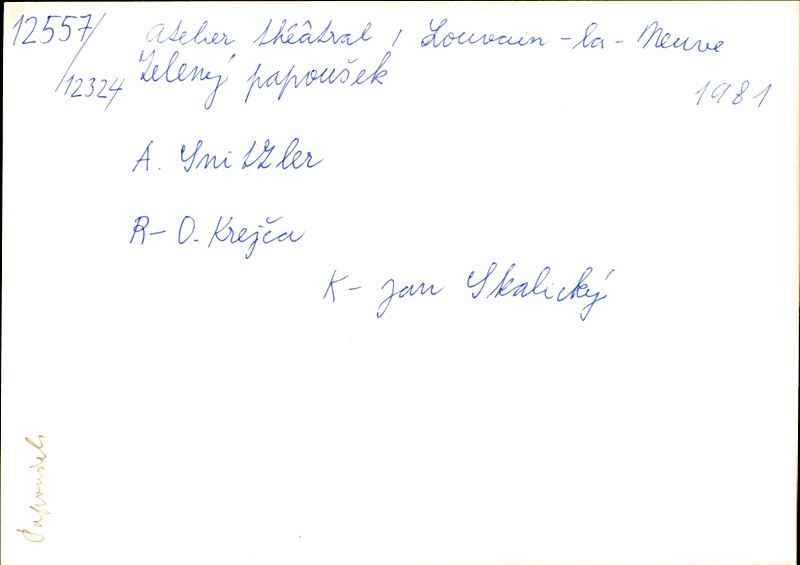 12557/ Atelier théâtral, Louvain-la-Neuve
/12324 Zelený papoušek
1981
A. Snitzler
R- O. Krejča
K- Jan Skalický
Papoušek